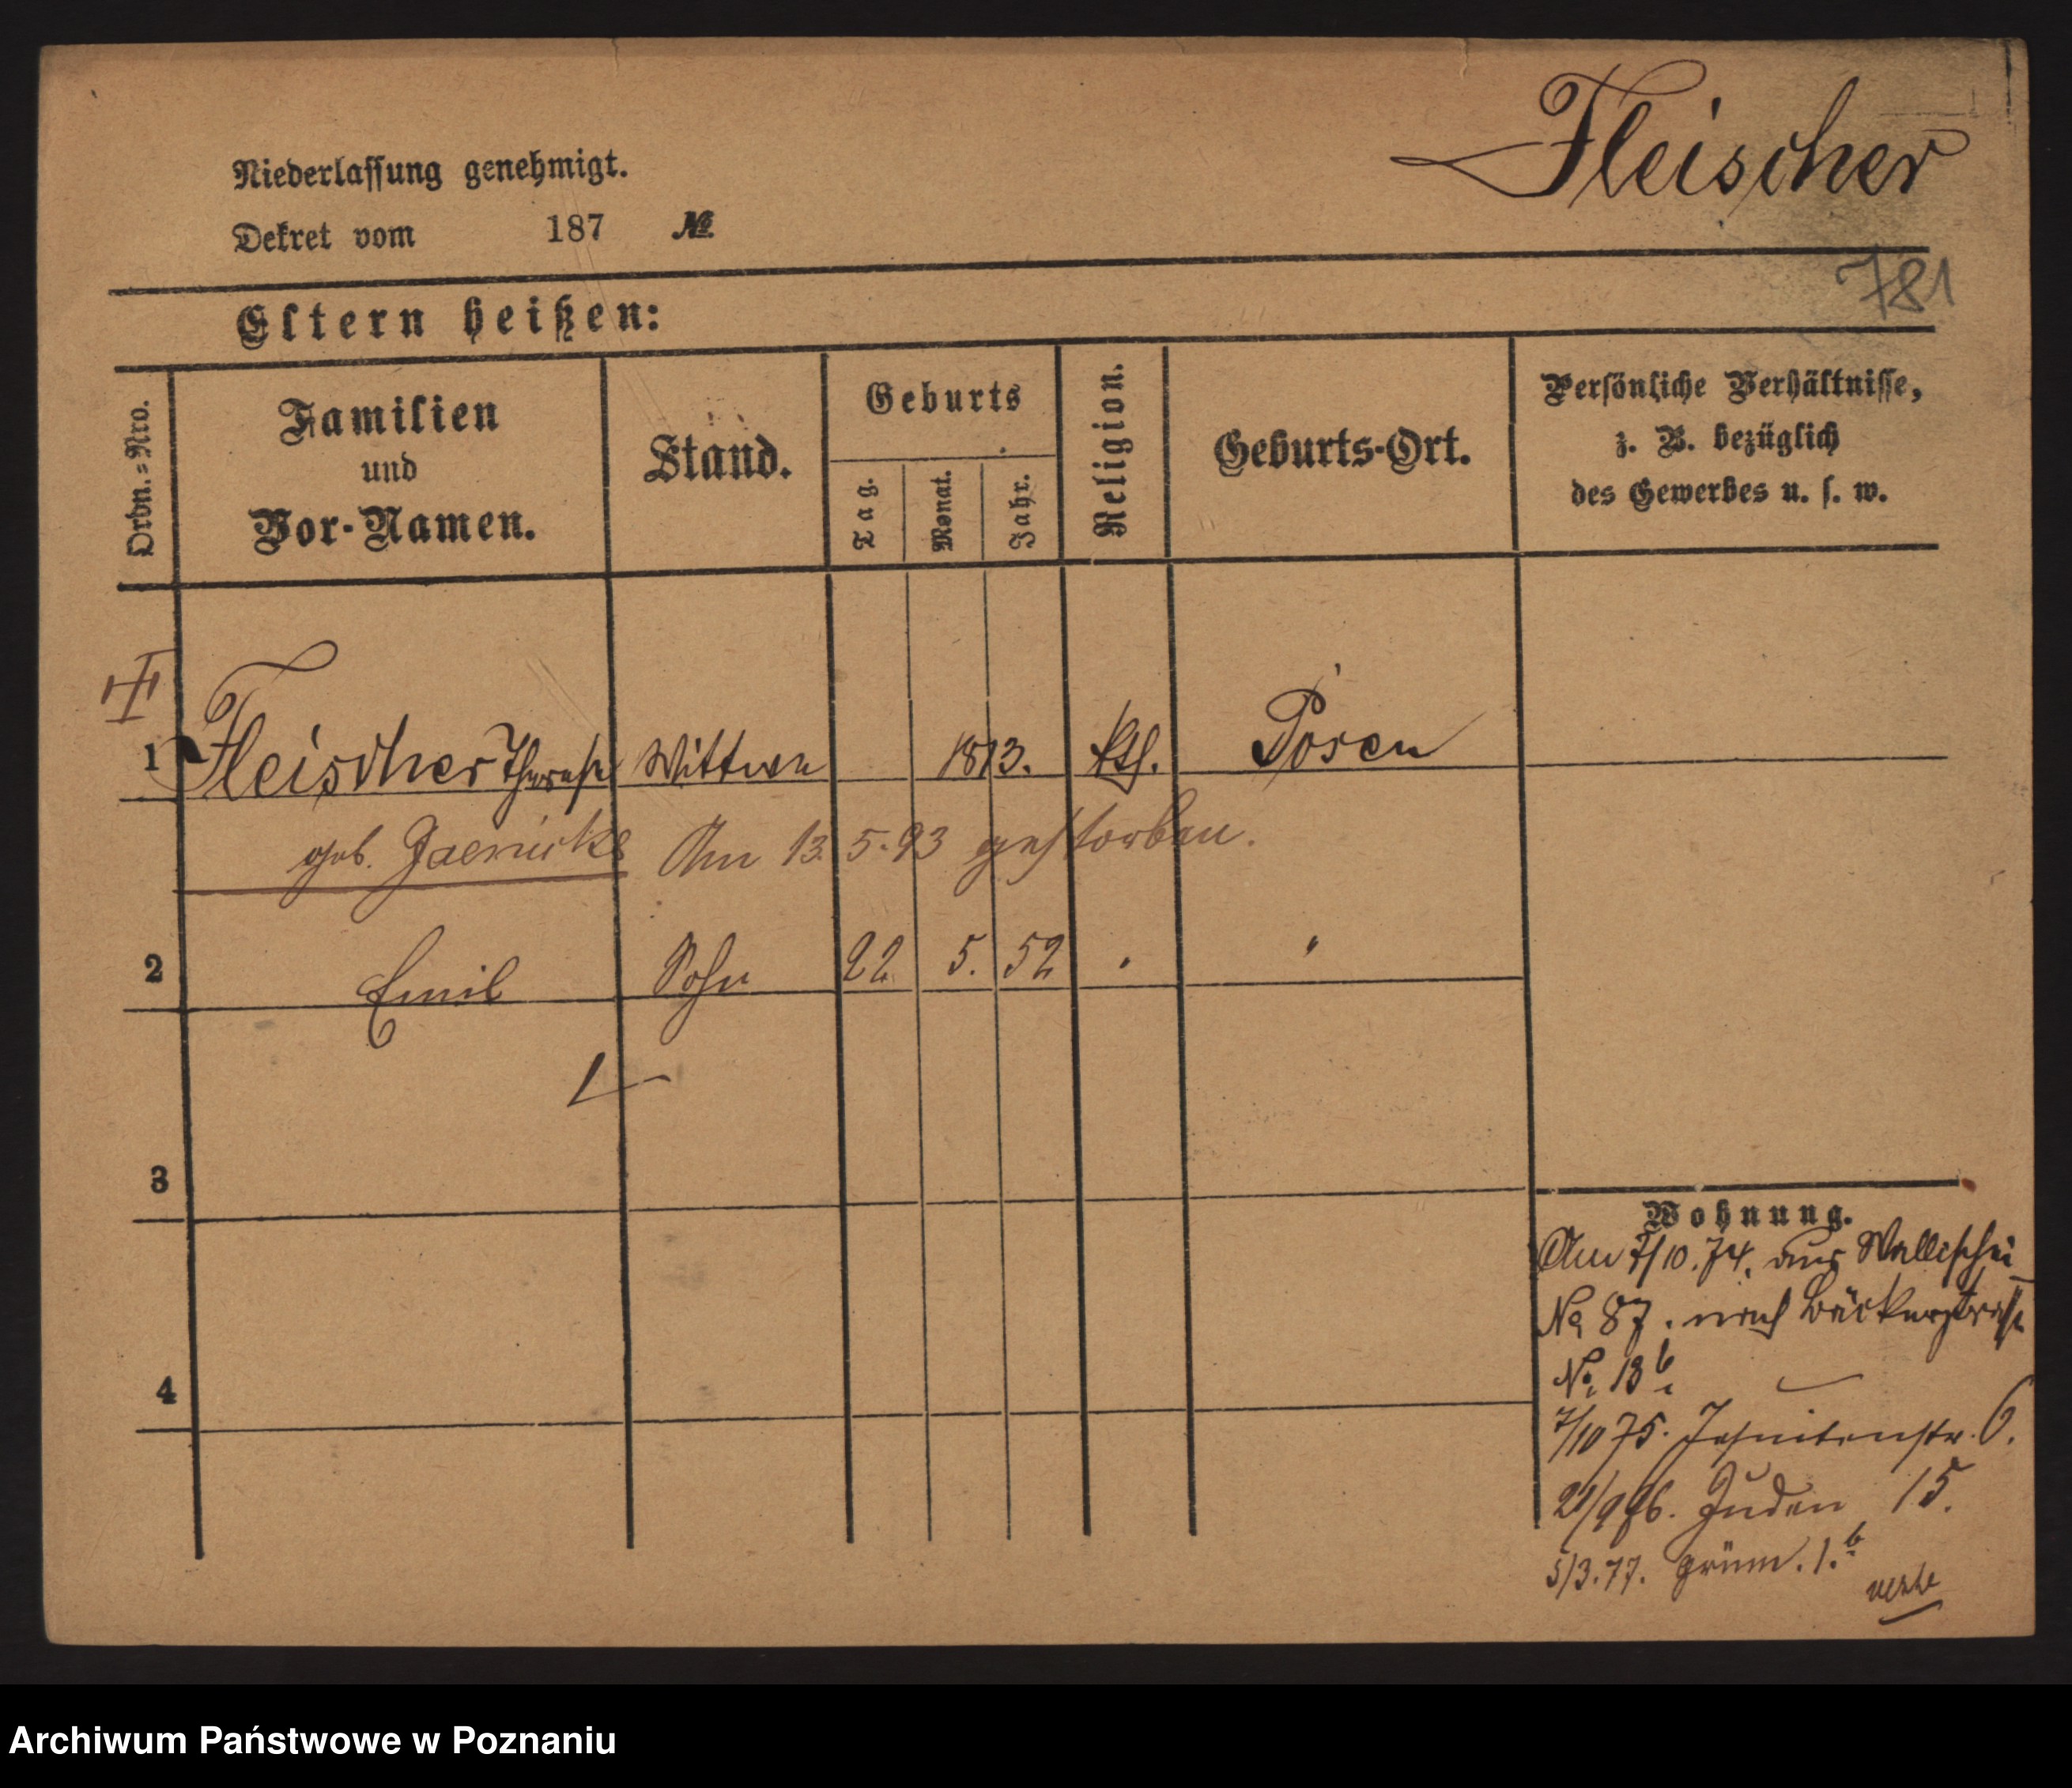 Fleischer
Niederlassung genehmigt.
Dekret vom 187 №
781
Eltern heißen:
Ordn.=Nro.
Familien
und
Vor-Namen.
Stand.
Geburts
Tag.
Monat.
Jahr.
Religion.
Geburts-Ort.
Persönliche Verhältnisse,
z. B. bezüglich
des Gewerbes u. s. w.
1 Fleischer Therese Wittwe 1813. kth. Posen
geb. Jaenicke Am 13.5.93 gestorben.
2 Emil Sohn 22. 5. 52 " "
3
4
Wohnung.
Am 7/10.74. aus Wallischei
No 87. nach Bäckerstraße
No. 13 b.
7/10 75. Jesuitenstr. 6.
Juden 15.
5/3.77. 1. b